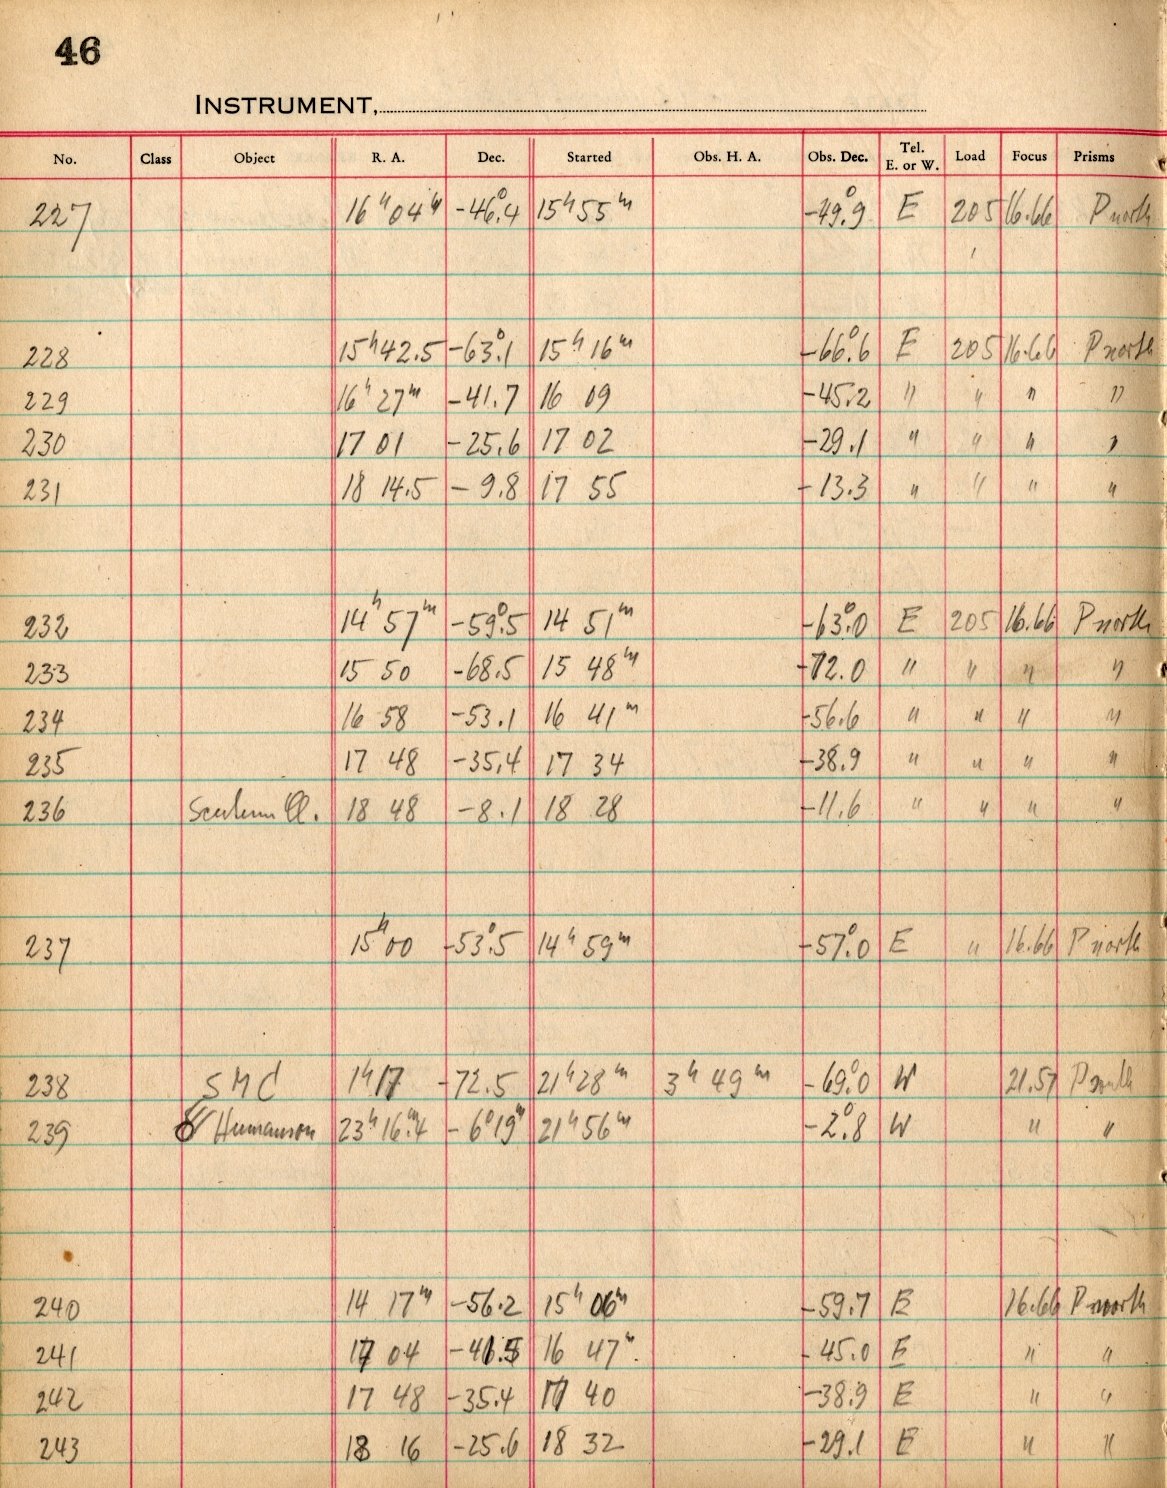 46
INSTRUMENT,
No. Class Object R. A. Dec. Started Obs. H. A. Obs. Dec. Tel. E. or W. Load Focus Prisms
227 16ʰ04ᵐ -46°.4 15ʰ55ᵐ -49°.9 E 205 16.66 P north
228 15ʰ42.5 -63°.1 15ʰ16ᵐ -66°.6 E 205 16.66 P north
229 16ʰ27ᵐ -41.7 16 09 -45.2 " " " "
230 17 01 -25.6 17 02 -29.1 " " " "
231 18 14.5 -9.8 17 55 -13.3 " " " "
232 14ʰ57ᵐ -59°.5 14 51ᵐ -63°.0 E 205 16.66 P north
233 15 50 -68.5 15 48ᵐ -72.0 " " " "
234 16 58 -53.1 16 41ᵐ -56.6 " " " "
235 17 48 -35.4 17 34 -38.9 " " " "
236 Scutum Cl. 18 48 -8.1 18 28 -11.6 " " " "
237 15ʰ00 -53°.5 14ʰ59ᵐ -57°.0 E " 16.66 P north
238 SMC 1ʰ17 -72.5 21ʰ28ᵐ 3ʰ49ᵐ -69°.0 W 21.57 P
239 Humason 23ʰ16ᵐ.4 -6°19' 21ʰ56ᵐ -2°.8 W " "
240 14 17ᵐ -56.2 15ʰ06ᵐ -59.7 E 16.66 P north
241 17 04 -41.5 16 47ᵐ. -45.0 E " "
242 17 48 -35.4 17 40 -38.9 E " "
243 18 16 -25.6 18 32 -29.1 E " "